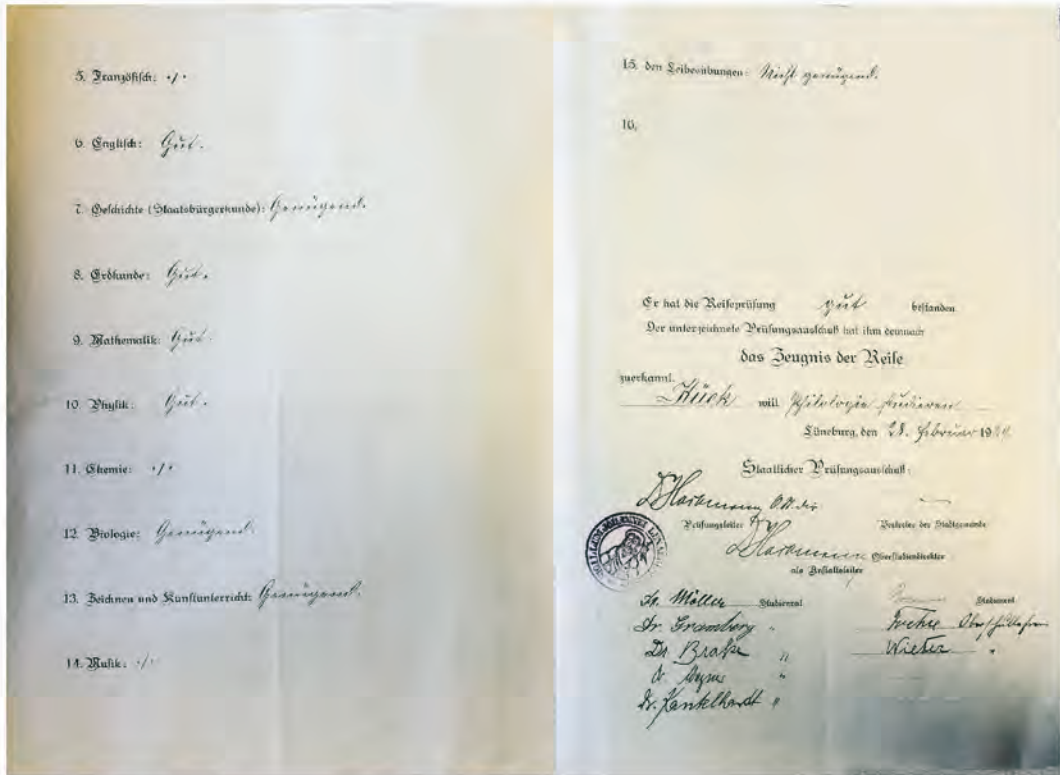 5. Französisch: ·/·
6. Englisch: Gut.
7. Geschichte (Staatsbürgerkunde): Genügend.
8. Erdkunde: Gut.
9. Mathematik: Gut.
10. Physik: Gut.
11. Chemie: ·/·
12. Biologie: Genügend.
13. Zeichnen und Kunstunterricht: Genügend.
14. Musik: ·/·
15. den Leibesübungen: Nicht genügend.
16.
Er hat die Reifeprüfung gut bestanden
Der unterzeichnete Prüfungsausschuß hat ihm demnach
das Zeugnis der Reife
zuerkannt.
will Philologie studieren
Lüneburg, den 28. Februar 19
Staatlicher Prüfungsausschuß:
Prüfungsleiter
Vertreter der Stadtgemeinde
Oberstudiendirektor
als Anstaltsleiter
Dr. Möller Studienrat
Studienrat
Dr. Gramberg "
Dr. Brake "
Wieter "
Dr. Kankelhardt "